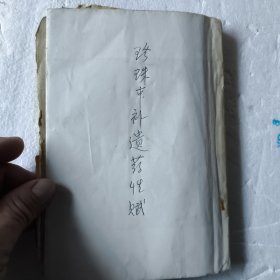 珍珠囊补遗药性赋